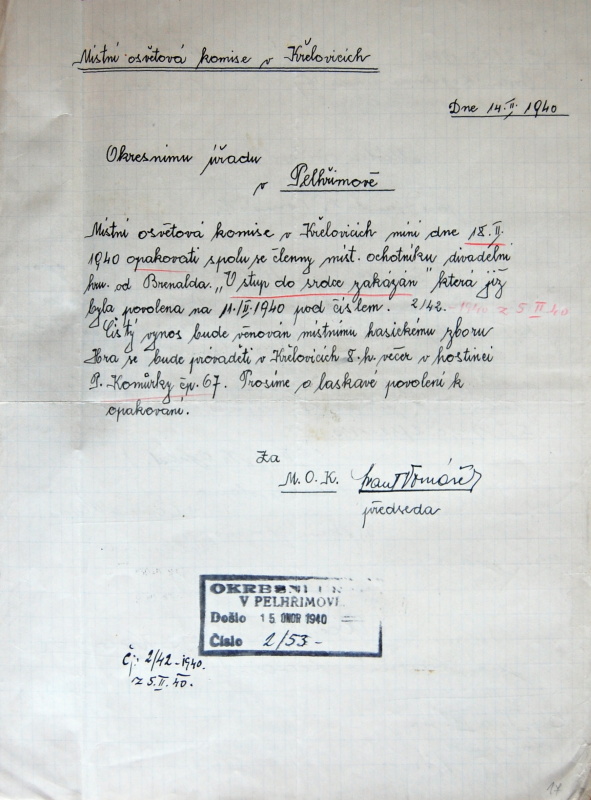 Místní osvětová komise v Křelovicích
Dne 14.II. 1940
Okresnímu úřadu
v Pelhřimově
Místní osvětová komise v Křelovicích míní dne 18.II.
1940 opakovati spolu se členny míst. ochotníku divadelní
hru od Brenalda. „V stup do srdce zakázán" která již
byla povolena na 11./II 1940 pod číslem. 2/42. -1940 z 5 II 40
Čistý vynos bude věnován místnímu hasickému zboru
Hra se bude prováděti v Křelovicích 8.h. večer v hostinci
P. Komůrky čp. 67. Prosíme o laskavé povolení k
opakování.
Za
M.O.K.
předseda
OKRESNÍ
V PELHŘIMOVĚ
Došlo 15. ÚNOR 1940
Číslo 2/53-
Čj: 2/42-1940.
z 5.II.40.